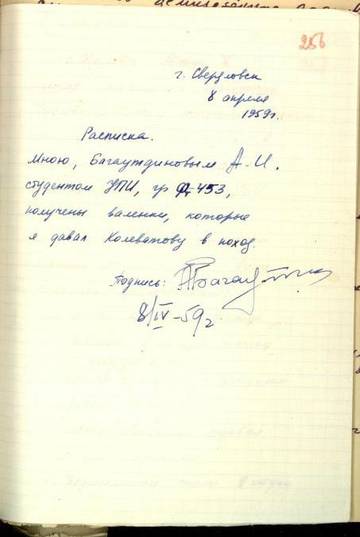 256
г. Свердловск
8 апреля
1959г.
Расписка.
Мною, Багаутдиновым А.И.
студентом УПИ, гр Ф-453,
получены валенки, которые
я давал Колеватову в поход.
Подпись: Багаут
8/IV-59г